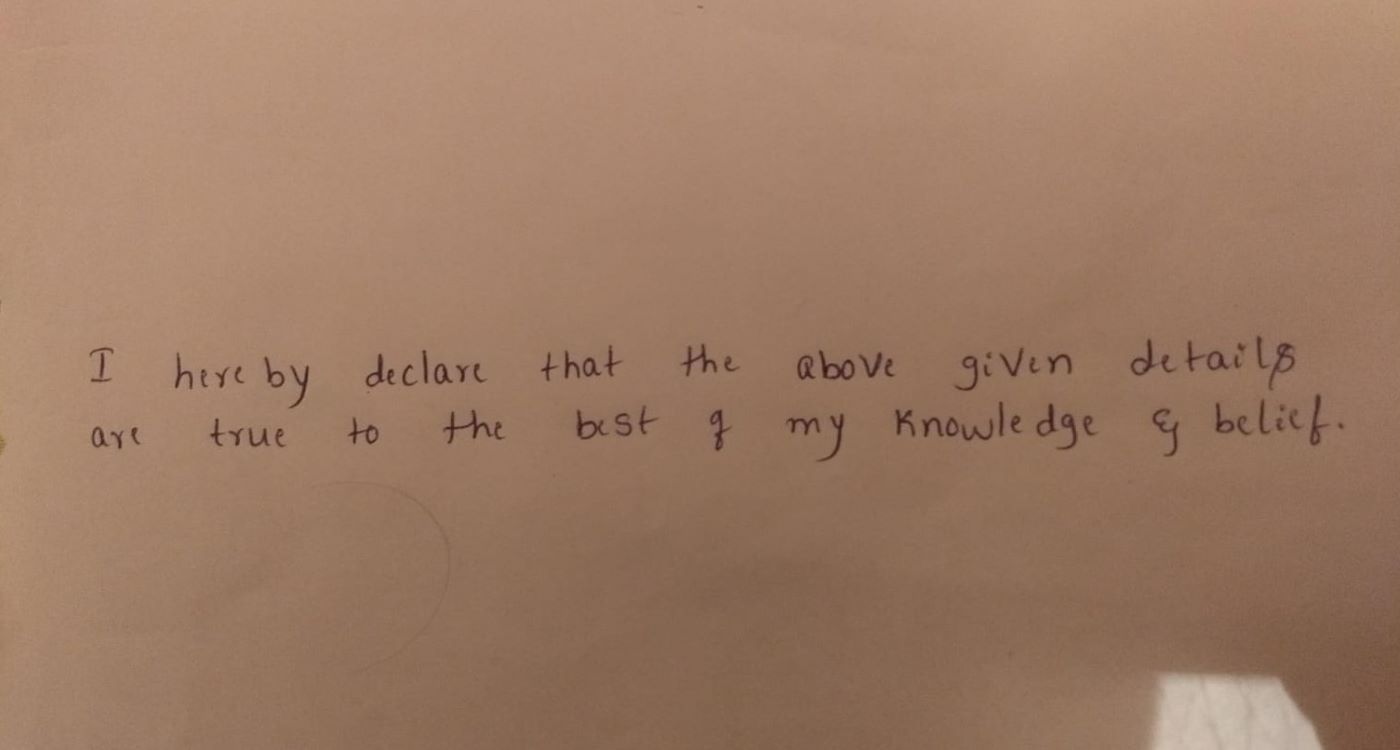 I hereby declare that the above given details
are true to the best of my knowledge & belief.